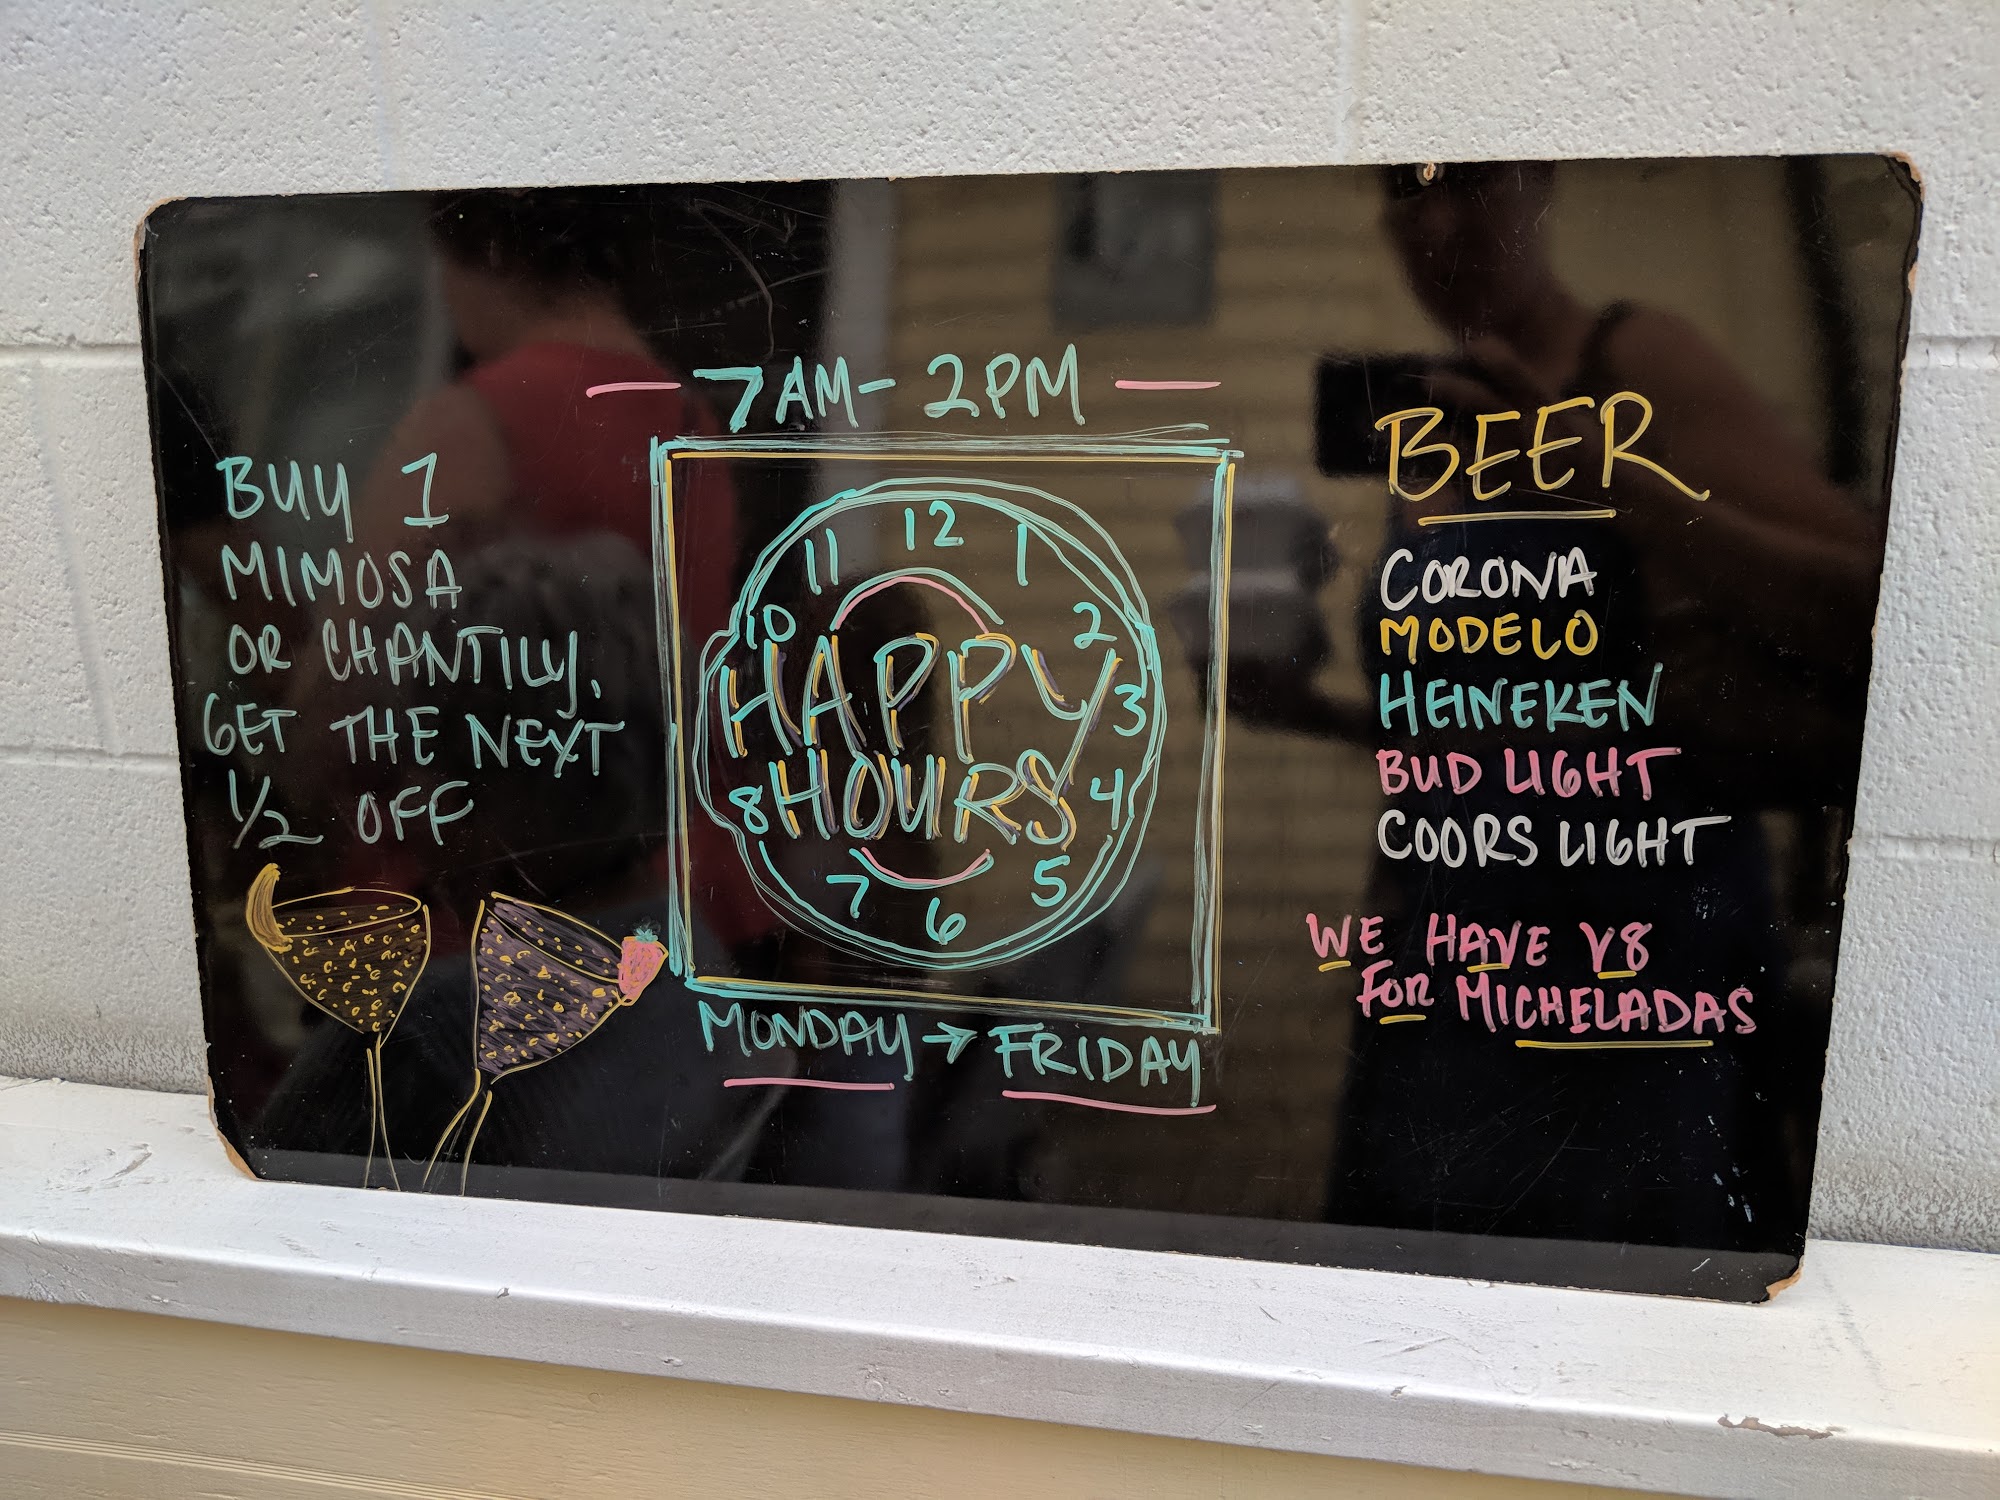 BUY 1
MIMOSA
OR CHANTILLY,
GET THE NEXT
1/2 OFF
7AM - 2PM
12
11 1
10 2
HAPPY
3
HOURS
8 4
7 5
6
MONDAY → FRIDAY
BEER
CORONA
MODELO
HEINEKEN
BUD LIGHT
COORS LIGHT
WE HAVE V8
FOR MICHELADAS